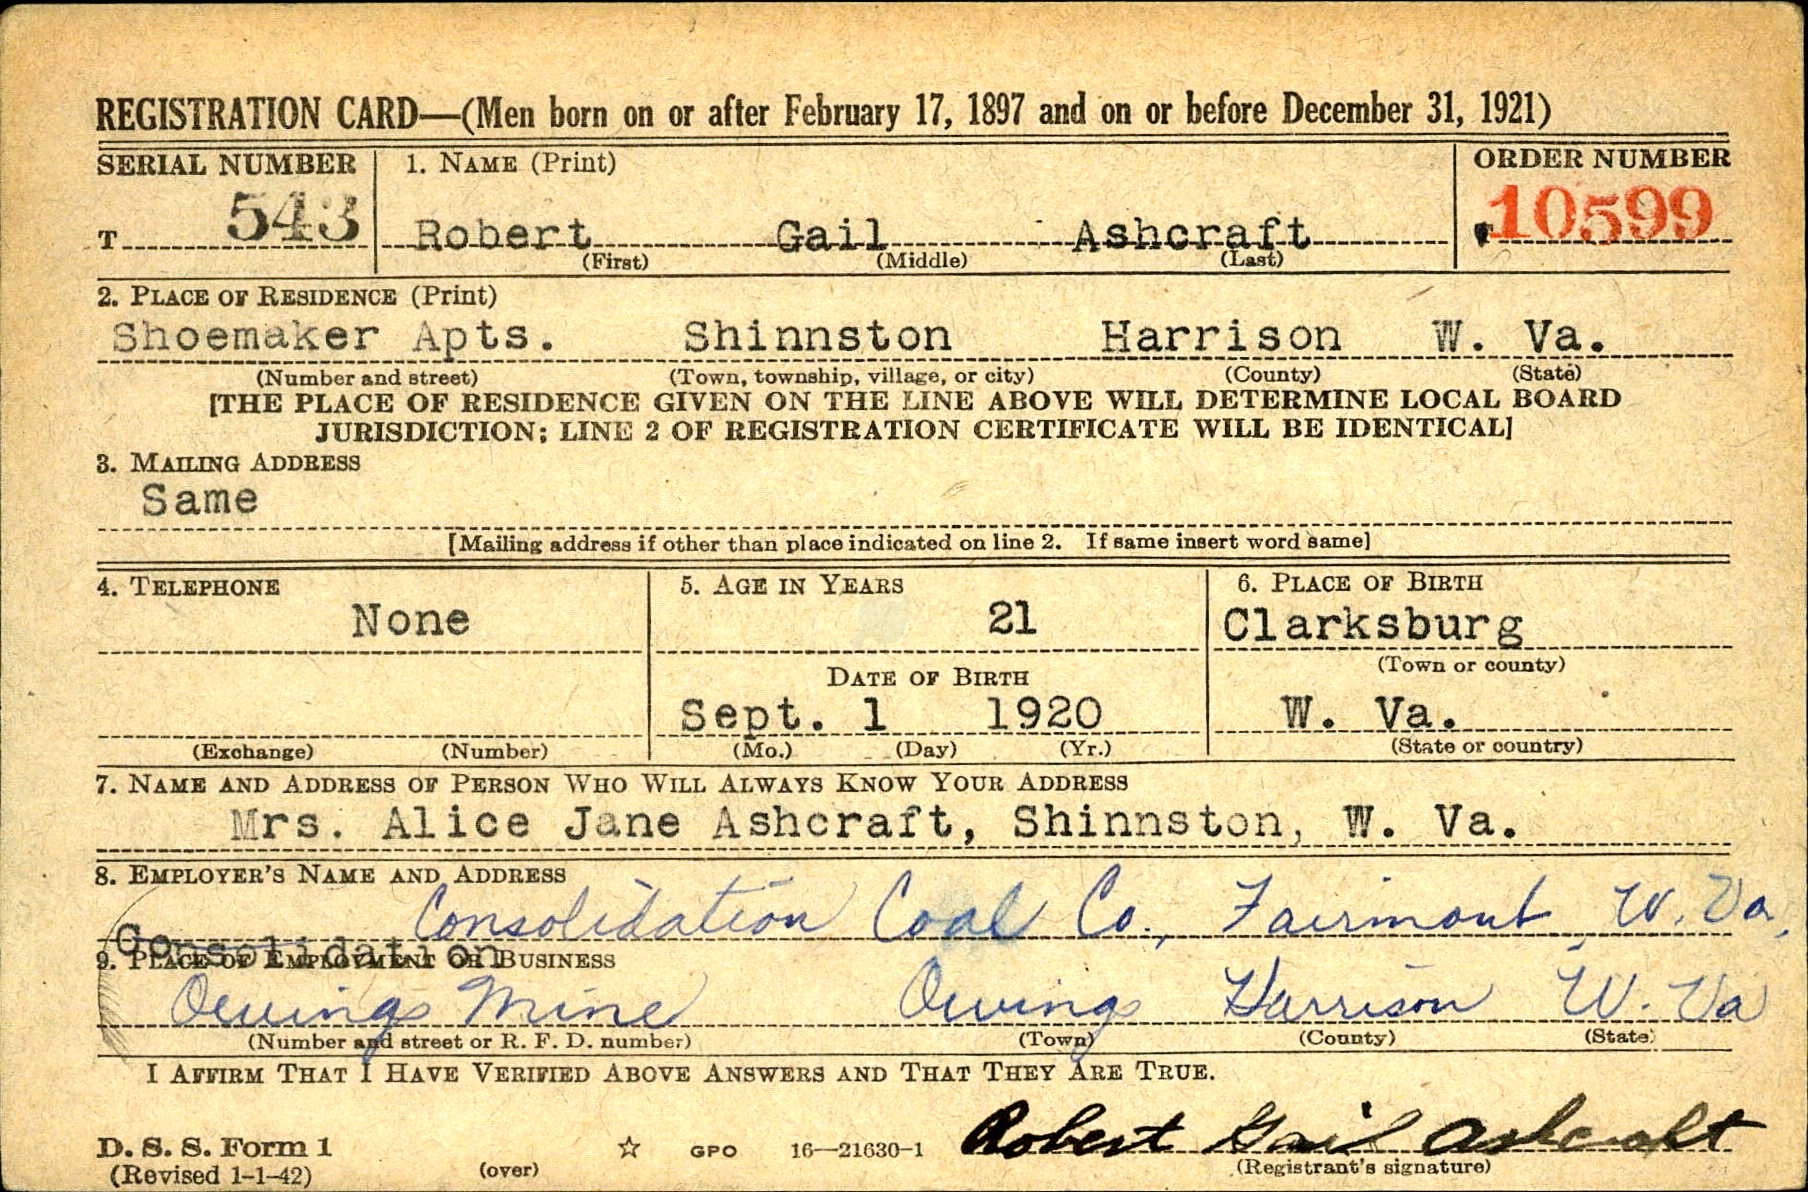 REGISTRATION CARD—(Men born on or after February 17, 1897 and on or before December 31, 1921)
SERIAL NUMBER 1. NAME (Print) ORDER NUMBER
T 543 Robert Gail Ashcraft 10599
(First) (Middle) (Last)
2. PLACE OF RESIDENCE (Print)
Shoemaker Apts. Shinnston Harrison W. Va.
(Number and street) (Town, township, village, or city) (County) (State)
[THE PLACE OF RESIDENCE GIVEN ON THE LINE ABOVE WILL DETERMINE LOCAL BOARD
JURISDICTION; LINE 2 OF REGISTRATION CERTIFICATE WILL BE IDENTICAL]
3. MAILING ADDRESS
Same
[Mailing address if other than place indicated on line 2. If same insert word same]
4. TELEPHONE 5. AGE IN YEARS 6. PLACE OF BIRTH
None 21 Clarksburg
(Town or county)
DATE OF BIRTH
Sept. 1 1920 W. Va.
(Exchange) (Number) (Mo.) (Day) (Yr.) (State or country)
7. NAME AND ADDRESS OF PERSON WHO WILL ALWAYS KNOW YOUR ADDRESS
Mrs. Alice Jane Ashcraft, Shinnston, W. Va.
8. EMPLOYER'S NAME AND ADDRESS
Consolidation Coal Co., Fairmont, W. Va.
Consolidation
9. PLACE OF EMPLOYMENT OR BUSINESS
Owings Mine Owings Harrison W. Va
(Number and street or R. F. D. number) (Town) (County) (State)
I AFFIRM THAT I HAVE VERIFIED ABOVE ANSWERS AND THAT THEY ARE TRUE.
Robert Gail Ashcraft
D. S. S. Form 1 GPO 16—21630-1
(Revised 1-1-42) (over) (Registrant's signature)